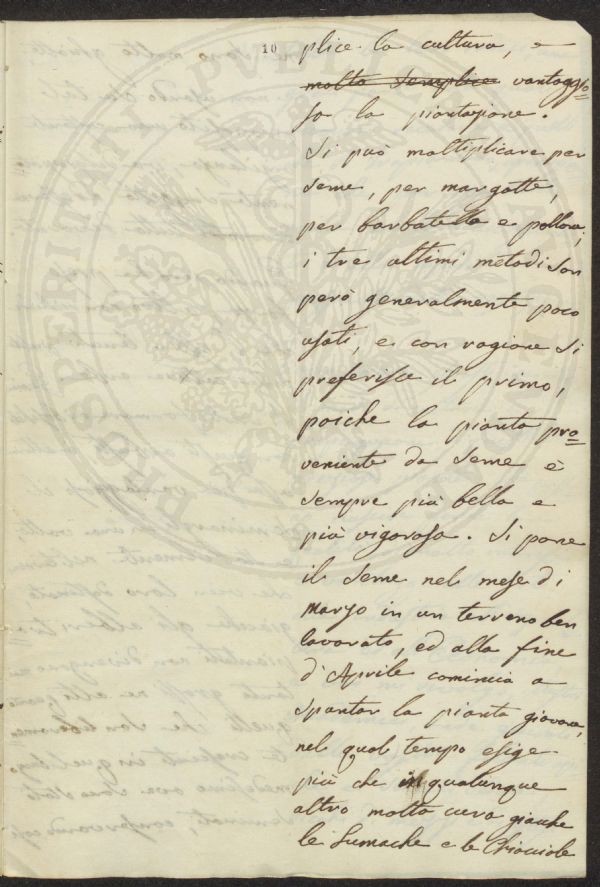 10
plice la cultura, e
molto semplice vantaggio=
sa la piantagione.
Si può moltiplicare per
seme, per margotte,
per barbatelle e polloni;
i tre ultimi metodi son
però generalmente poco
usati, e con ragione si
preferisce il primo,
poiche la pianta pro=
veniente da seme è
sempre più bella e
più vigorosa. Si pone
il seme nel mese di
Marzo in un terreno ben
lavorato, ed alla fine
d'Aprile comincia a
spuntar la pianta giovane,
nel qual tempo esige
più che in qualunque
altro molta cura giacche
le Lumache e le Chiociole
PROSPERITATI PVBLICAE